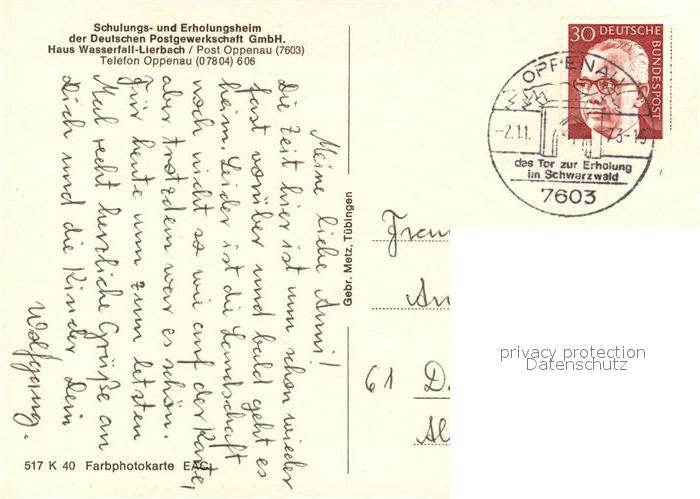 Schulungs- und Erholungsheim
der Deutschen Postgewerkschaft GmbH.
Haus Wasserfall-Lierbach / Post Oppenau (7603)
Telefon Oppenau (07804) 606
Meine liebe Anni!
Die Zeit hier ist nun schon wieder
fast vorüber und bald geht es
heim. Leider ist die Landschaft
noch nicht so wie auf der Karte,
aber trotzdem war es schön.
Für heute nun zum letzten
Mal recht herzliche Grüße an
Dich und die Kinder Dein
Wolfgang.
517 K 40 Farbphotokarte EAG
Gebr. Metz, Tübingen
30 DEUTSCHE
BUNDESPOST
OPPENAU
-2.11. 73-15
das Tor zur Erholung
im Schwarzwald
7603
Frau
An
61 D
Al
privacy protection
Datenschutz